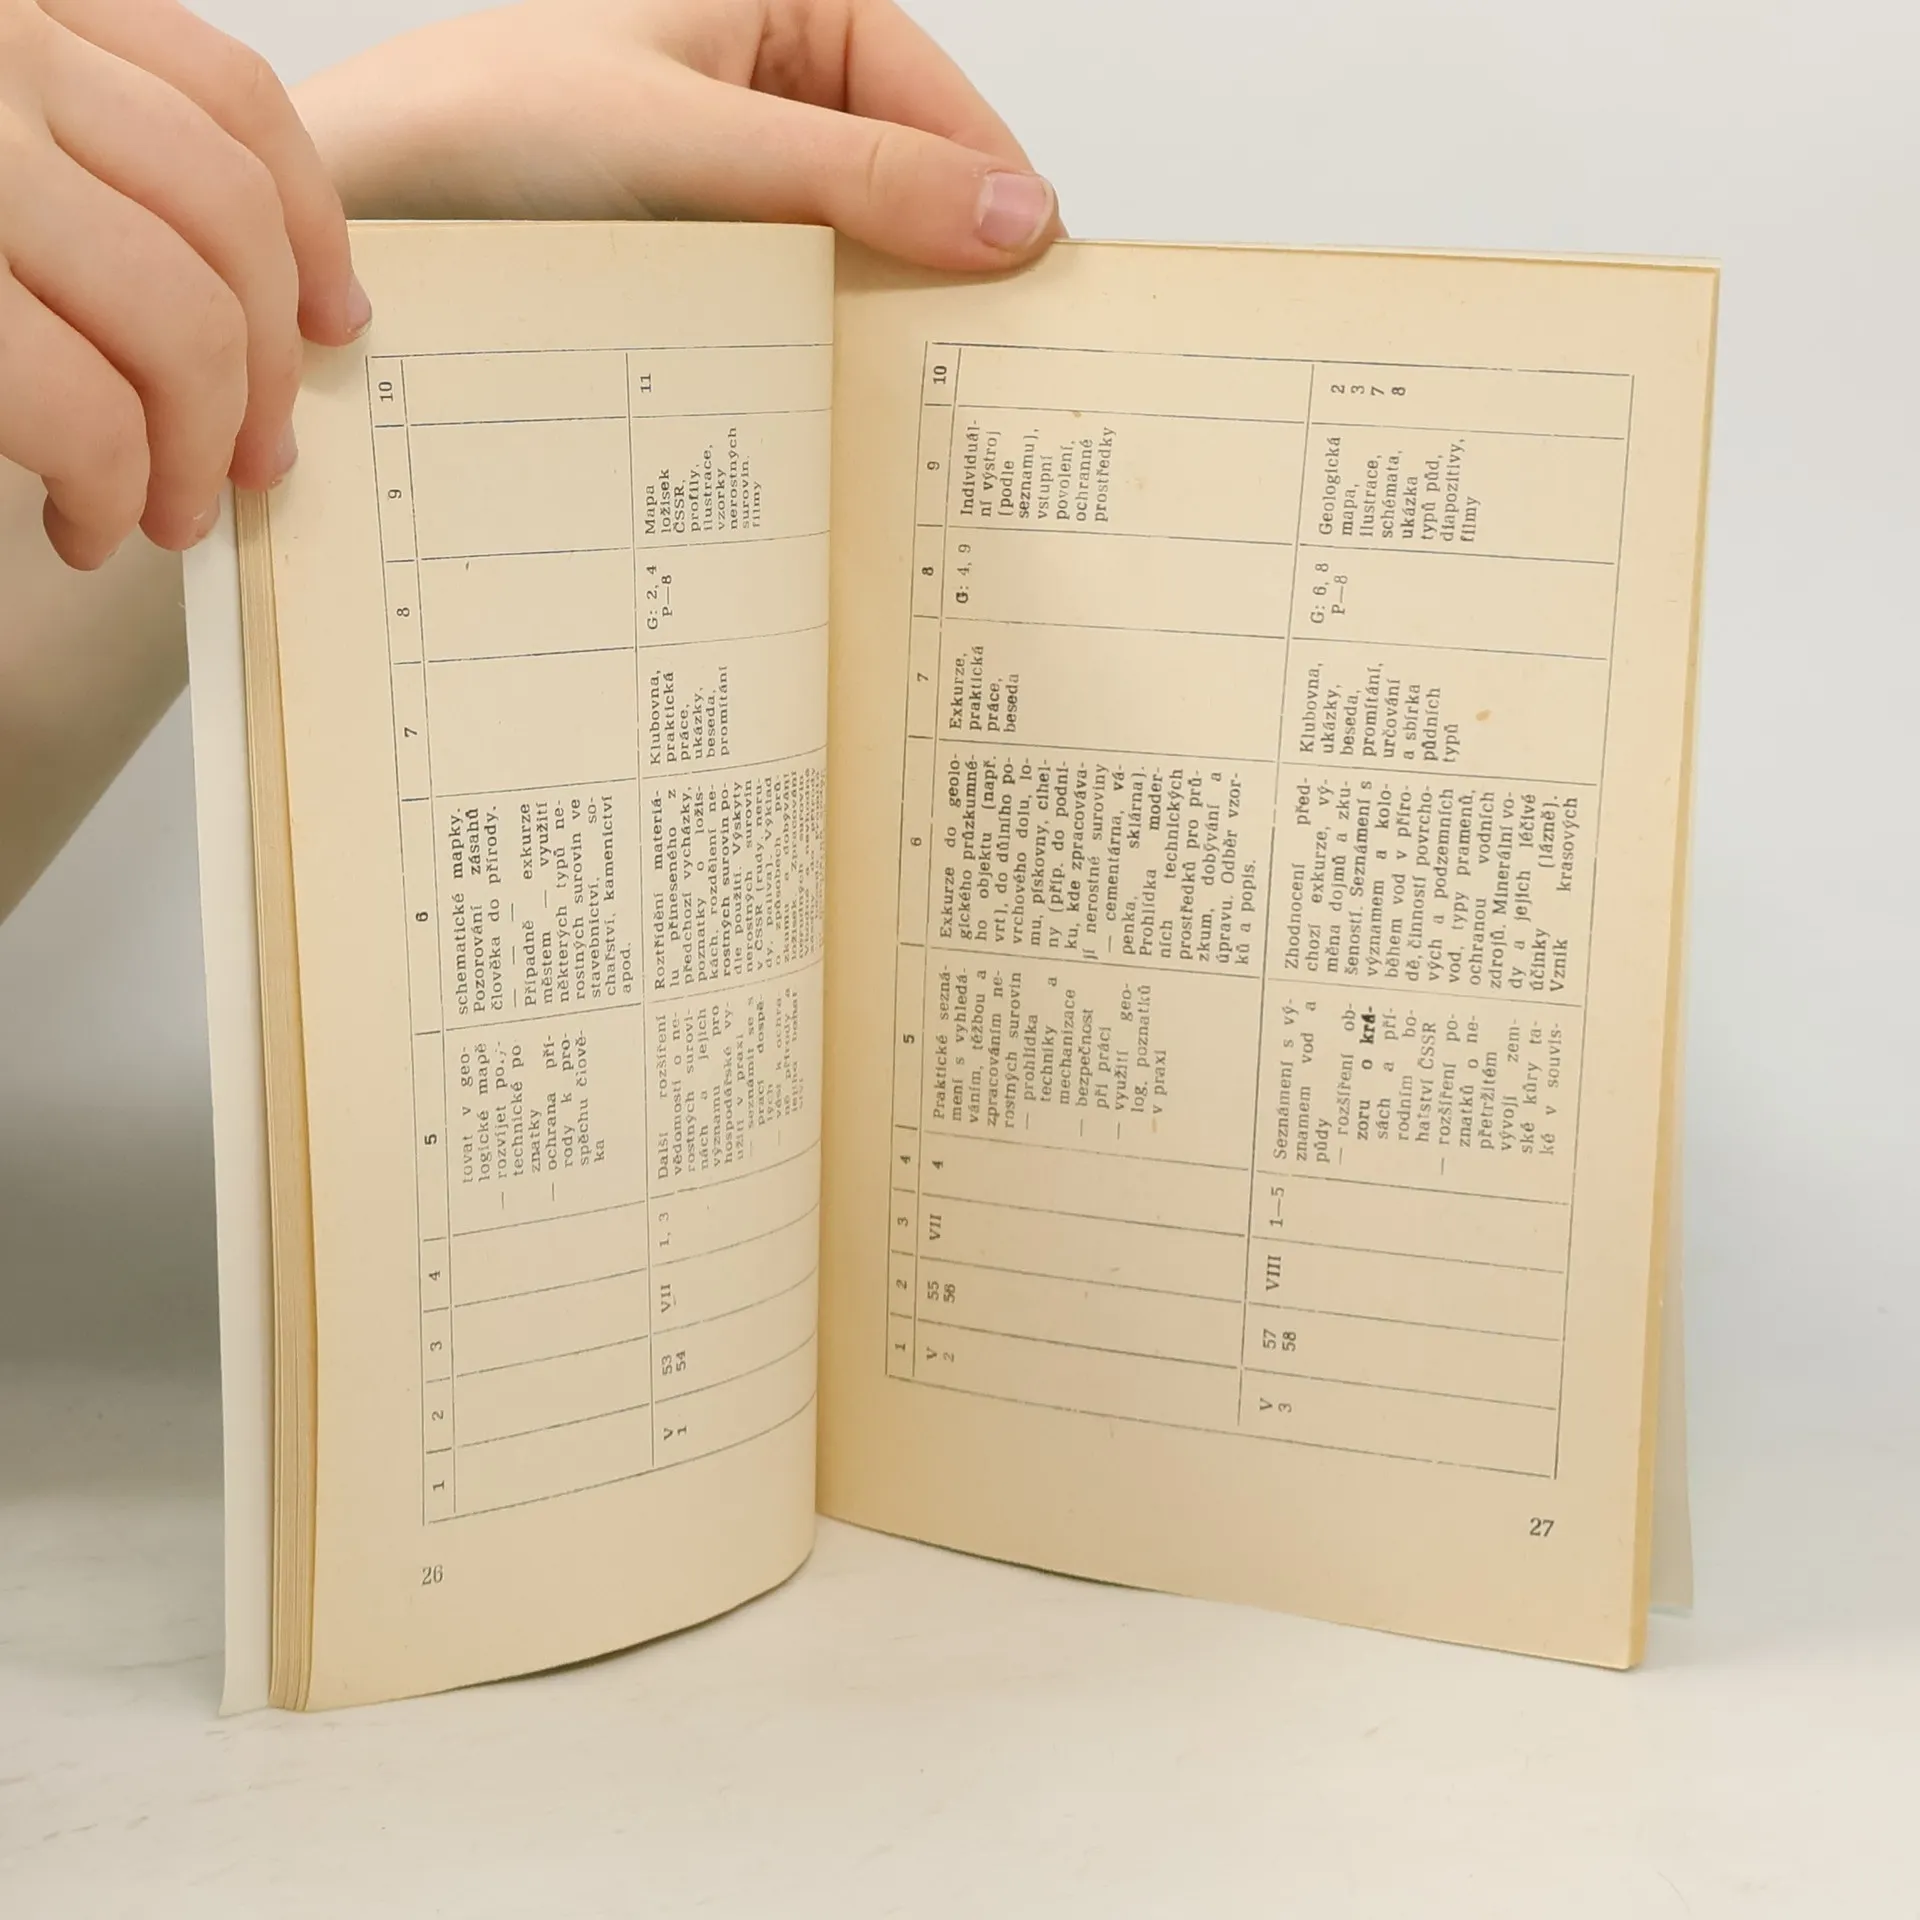 1
2
3
4
5
6
7
8
9
10
tovat v geo-
logické mapě
technické po
znatky
— ochrana pří-
rody k pro-
spěchu člově-
ka
schematické mapky.
Pozorování zásahů
člověka do přírody.
— — — —
Případně exkurze
městem — využití
některých typů ne-
rostných surovin ve
stavebnictví, so-
chařství, kamenictví
apod.
V
1
53
54
VII
1, 3
Další rozšíření
vědomostí o ne-
rostných surovi-
nách a jejich
významu pro
hospodářské vy-
užití v praxi
— seznámit se s
prací dospě-
lých
— vést k ochra
ně přírody a
jejího bohat
Roztřídění materiá-
lu přineseného z
předchozí vycházky,
poznatky o ložis-
kách, rozdělení ne-
rostných surovin po-
dle použití. Výskyty
nerostných surovin
v ČSSR (rudy, neru-
dy, paliva). Výklad
o způsobech prů-
zkumu a dobývání
ložisek, zpracování
nerostných surovin
Klubovna,
praktická
práce,
ukázky,
beseda,
promítání
G: 2, 4
P—8
Mapa
ložisek
ČSSR,
profily,
ilustrace,
vzorky
nerostných
surovin.
filmy
11
26
1
2
3
4
5
6
7
8
9
10
V
2
55
56
VII
4
Praktické sezná-
mení s vyhledá-
váním, těžbou a
zpracováním ne-
rostných surovin
— prohlídka
techniky a
mechanizace
— bezpečnost
při práci
— využití geo-
log. poznatků
v praxi
Exkurze do geolo-
gického průzkumné-
ho objektu (např.
vrt), do důlního po-
vrchového dolu, lo-
mu, pískovny, cihel-
ny (příp. do podni-
ku, kde zpracováva-
jí nerostné suroviny
— cementárna, vá-
penka, sklárna).
Prohlídka moder-
ních technických
prostředků pro prů-
zkum, dobývání a
úpravu. Odběr vzor-
ků a popis.
Exkurze,
praktická
práce,
beseda
G: 4, 9
Individuál-
ní výstroj
(podle
seznamu),
vstupní
povolení,
ochranné
prostředky
V
3
57
58
VIII
1—5
Seznámení s vý-
znamem vod a
půdy
— rozšíření ob-
zoru o krá-
sách a pří-
rodním bo-
hatství ČSSR
— rozšíření po-
znatků o ne-
přetržitém
vývoji zem-
ské kůry ta-
ké v souvis-
Zhodnocení před-
chozí exkurze, vý-
měna dojmů a zku-
šeností. Seznámení s
významem a kolo-
během vod v příro-
dě, činností povrcho-
vých a podzemních
vod, typy pramenů,
ochranou vodních
zdrojů. Minerální vo-
dy a jejich léčivé
účinky (lázně).
Vznik krasových
Klubovna,
ukázky,
beseda,
promítání,
určování
a sbírka
půdních
typů
G: 6, 8
P—8
Geologická
mapa,
ilustrace,
schémata,
ukázka
typů půd,
diapozitivy,
filmy
2
3
7
8
27